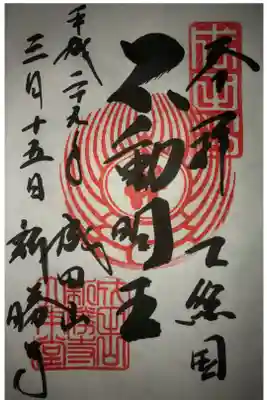 奉拝 下総国
不動明王
成田山 新勝寺
平成二十九年
三月十五日